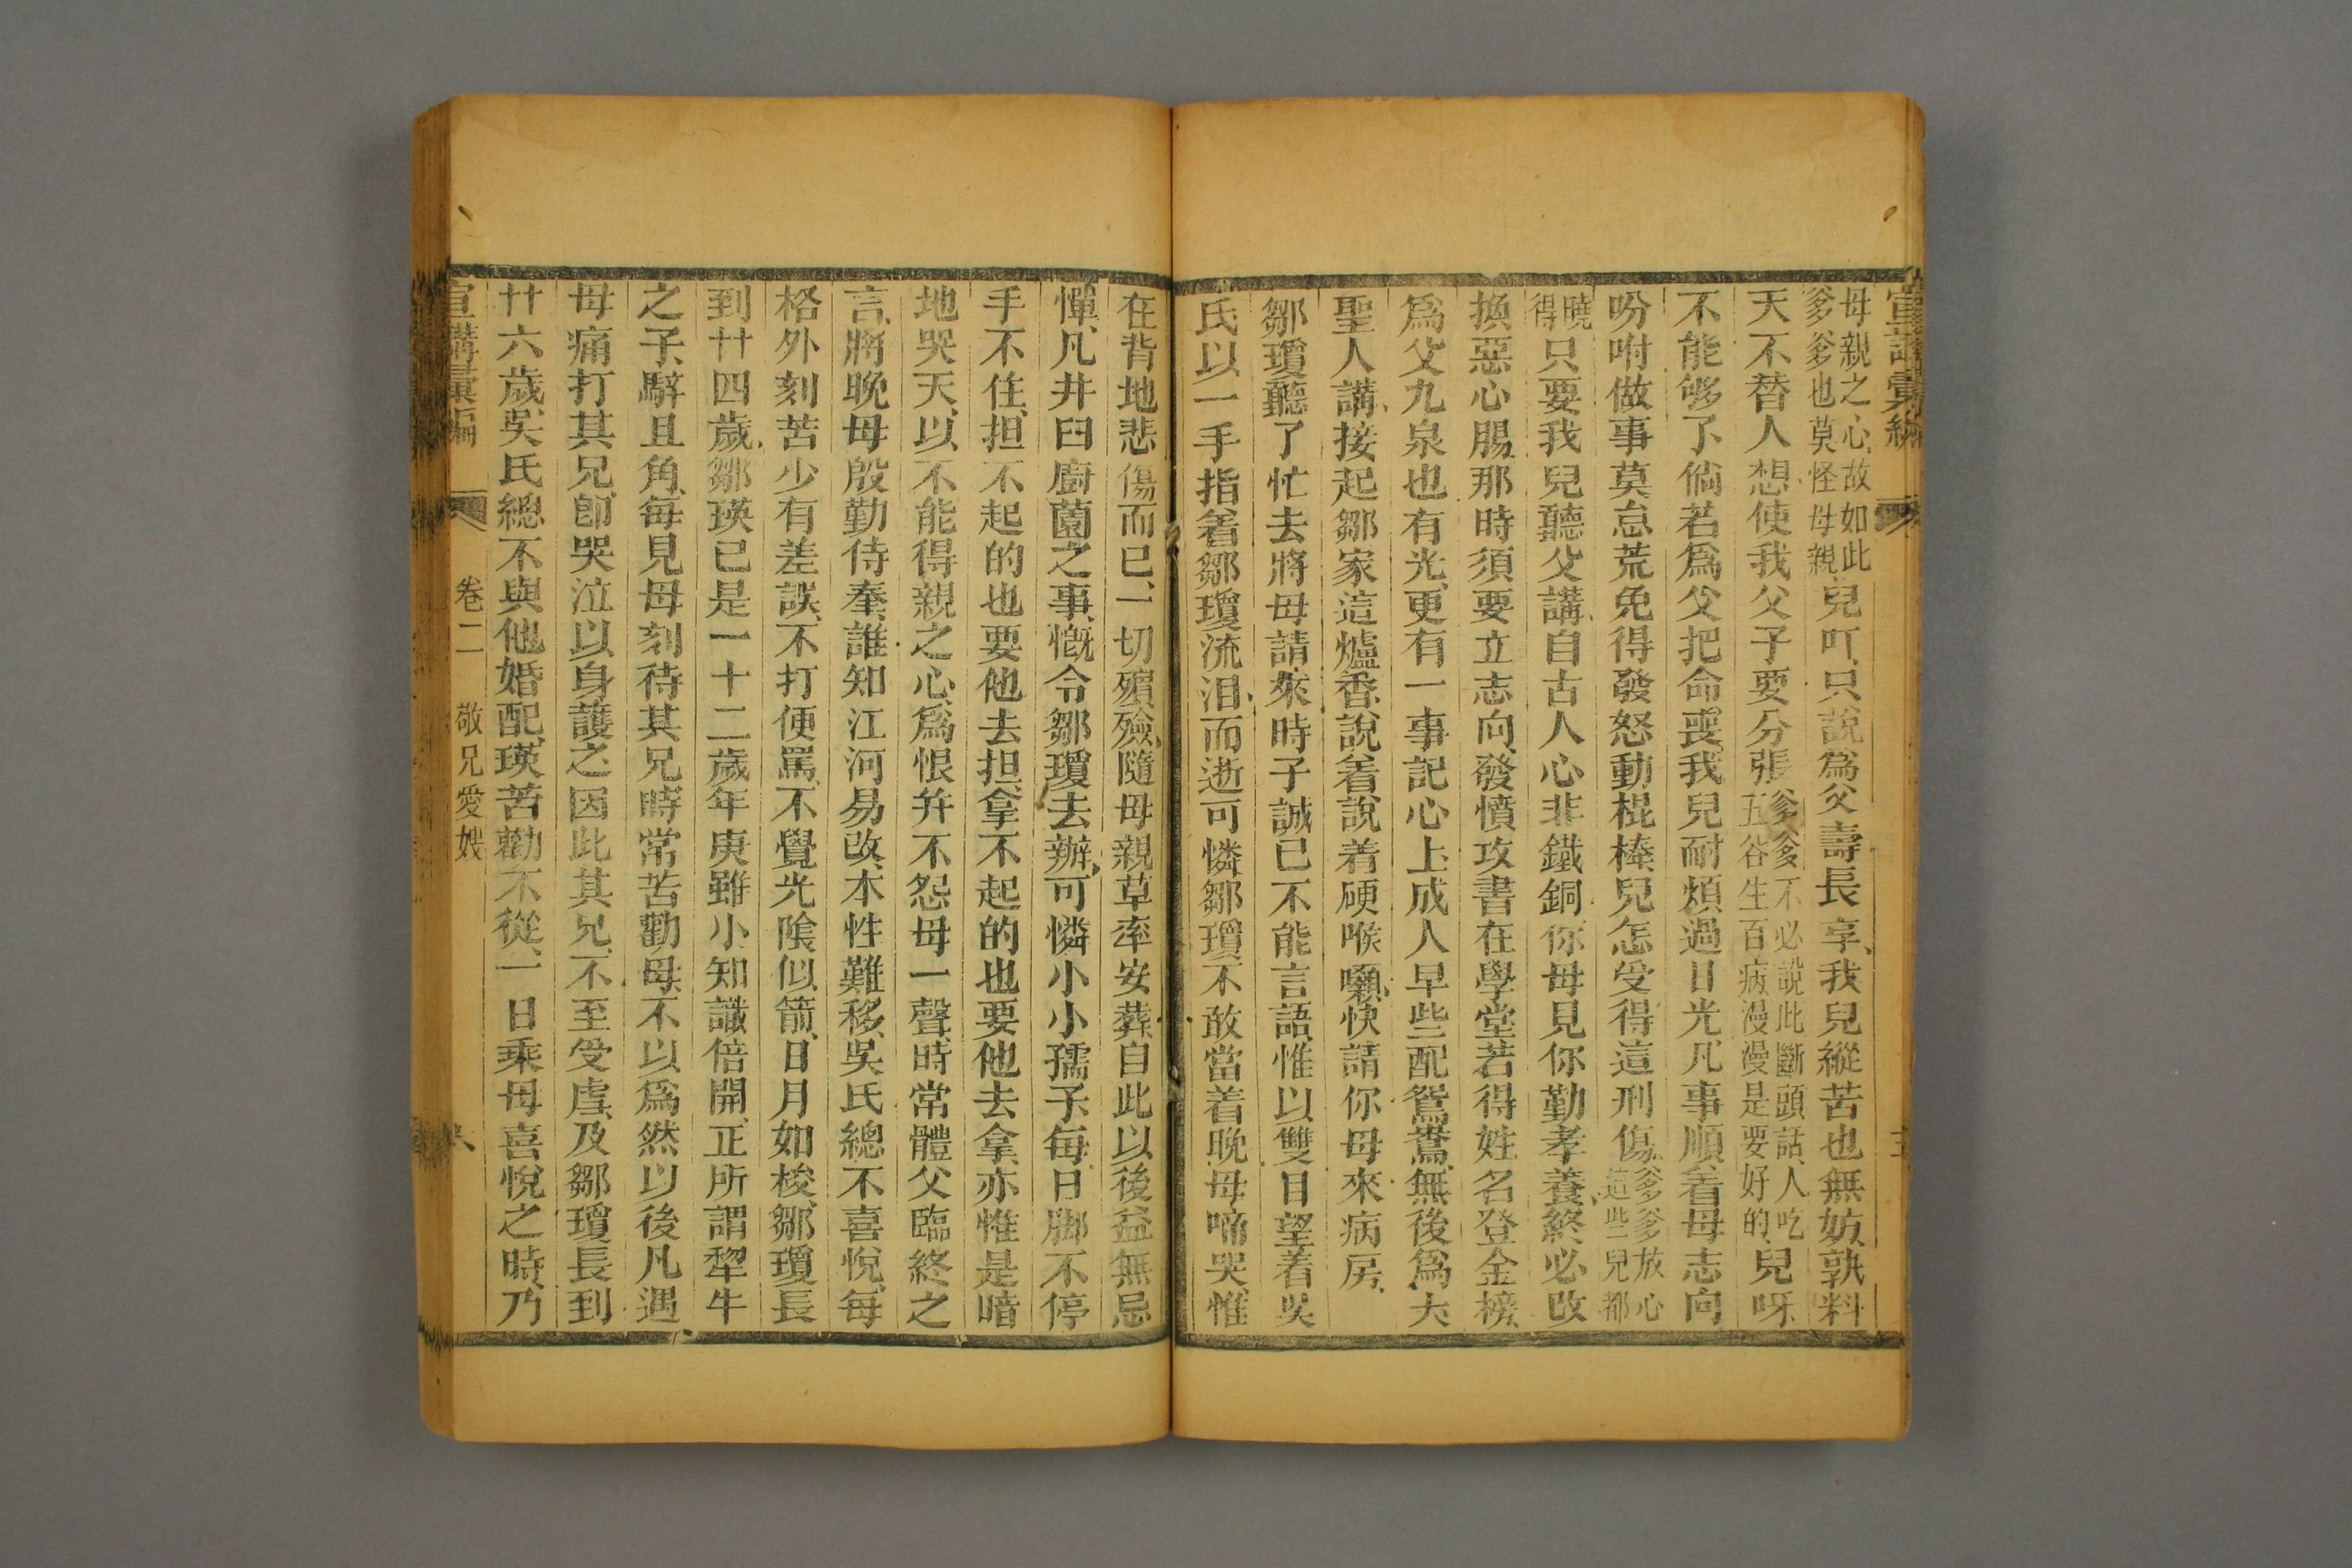 宣講彙編
母親之心、故如此
爹爹也莫怪母親、兒吖、只說爲父壽長享、我兒縱苦也無妨、孰料
天不替人想、使我父子要分張、爹爹不必說此斷頭話、人吃
五谷生百病、漫漫是要好的、兒呀、
不能够了、倘若爲父把命喪、我兒耐煩過日光、凡事順着母志向
吩咐做事莫怠荒、免得發怒動棍棒、兒怎受得這刑傷、爹爹放心
這些兒都
曉得只要我兒聽父講、自古人心非鐵銅、你母見你勤孝養、終必改
換惡心腸、那時須要立志向、發憤攻書在學堂、若得姓名登金榜、
爲父九泉也有光、更有一事記心上、成人早些配鴛鴦、無後爲大
聖人講、接起鄒家這爐香、說着說着硬喉嚨、快請你母來病房、
鄒瓊聽了、忙去將母請來、時子誠已不能言語、惟以雙目望着吳
氏、以一手指着鄒瓊、流泪而逝、可憐鄒瓊不敢當着晚母啼哭、惟
在背地悲傷而已、一切殯殮、隨母親草率安葬、自此以後、益無忌
憚、凡井臼廚薗之事、慨令鄒瓊去辦、可憐小小孺子、每日脚不停
手不住、担不起的也要他去担、拿不起的也要他去拿、亦惟是暗
地哭天、以不能得親之心爲恨、并不怨母一聲、時常體父臨終之
言、將晚母殷勤侍奉、誰知江河易改、本性難移、吳氏總不喜悅、每
格外刻苦、少有差誤、不打便罵、不覺光陰似箭、日月如梭、鄒瓊長
到廿四歲、鄒瑛已是一十二歲、年庚雖小、知識倍開、正所謂犂牛
之子、騂且角、每見母刻待其兄、時常苦勸、母不以爲然、以後凡遇
母痛打其兄、卽哭泣以身護之、因此其兄不至受虐、及鄒瓊長到
廿六歲、吳氏總不與他婚配、瑛苦勸不從、一日乘母喜悅之時、乃
宣講彙編　卷二　敬兄愛嫂